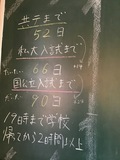 共テまで
52日
私大入試まで
だいたい 66日
国公立入試まで
だいたい 90日
19時まで学校
帰ってから2時間以上